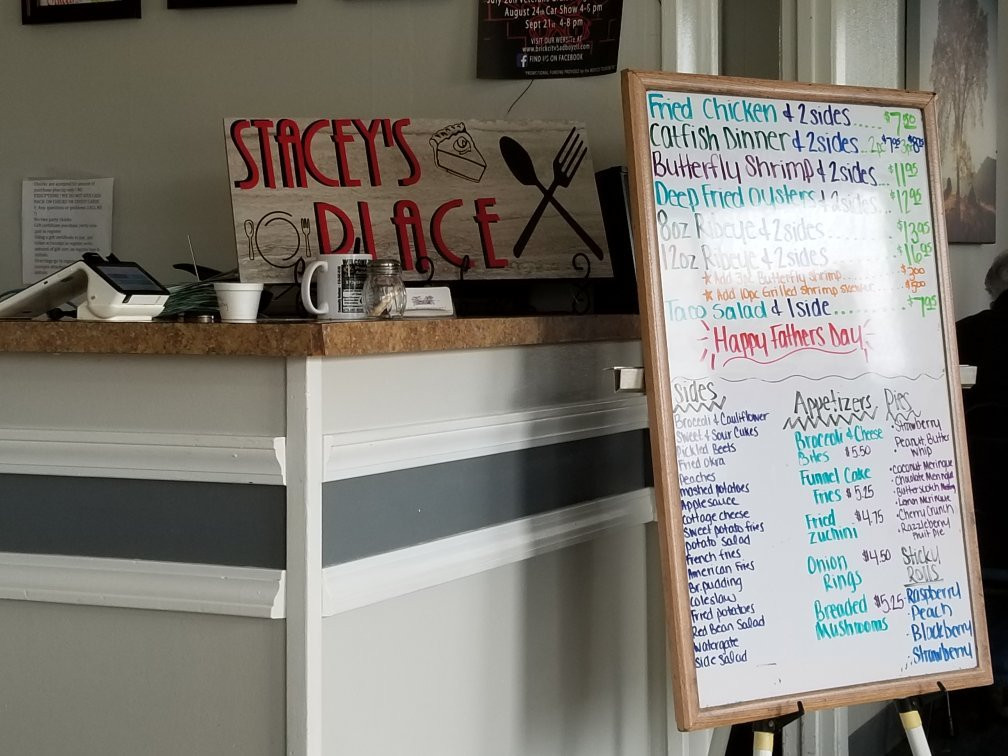 August 24th Car Show 4-8 pm
Sept 21st 4-8 pm
VISIT OUR WEBSITE AT
FIND US ON FACEBOOK
STACEY'S
PLACE
Fried Chicken & 2 sides....... $7.50
Catfish Dinner & 2 sides...
Butterfly Shrimp & 2 sides... $11.95
Deep Fried Oysters & 2 sides.... $12.95
8oz Ribeye & 2 sides....... $13.95
12oz Ribeye & 2 sides....... $16.95
★ Add 3pc Butterfly shrimp....... $3.00
★ Add 10pc Grilled shrimp skewer... $5.00
Taco Salad & 1 side........... $7.95
Happy Fathers Day
Sides
Broccoli & Cauliflower
Sweet & Sour Cukes
Pickled Beets
Fried Okra
Peaches
mashed potatoes
Applesauce
Cottage cheese
Sweet potato fries
potato salad
French fries
American Fries
Br. pudding
coleslaw
Fried potatoes
Red Bean Salad
Watergate
side salad
Appetizers
Broccoli & Cheese
Bites $5.50
Funnel Cake
Fries $5.25
Fried $4.75
Zuchini
Onion $4.50
Rings
Breaded $5.25
Mushrooms
Pies
• Strawberry
• Peanut Butter
Whip
• Coconut Meringue
• Chocolate Meringue
• Butterscotch
• Lemon Meringue
• Cherry Crunch
• Razzleberry
Fruit Pie
Sticky
Rolls
• Raspberry
• Peach
• Blackberry
• Strawberry